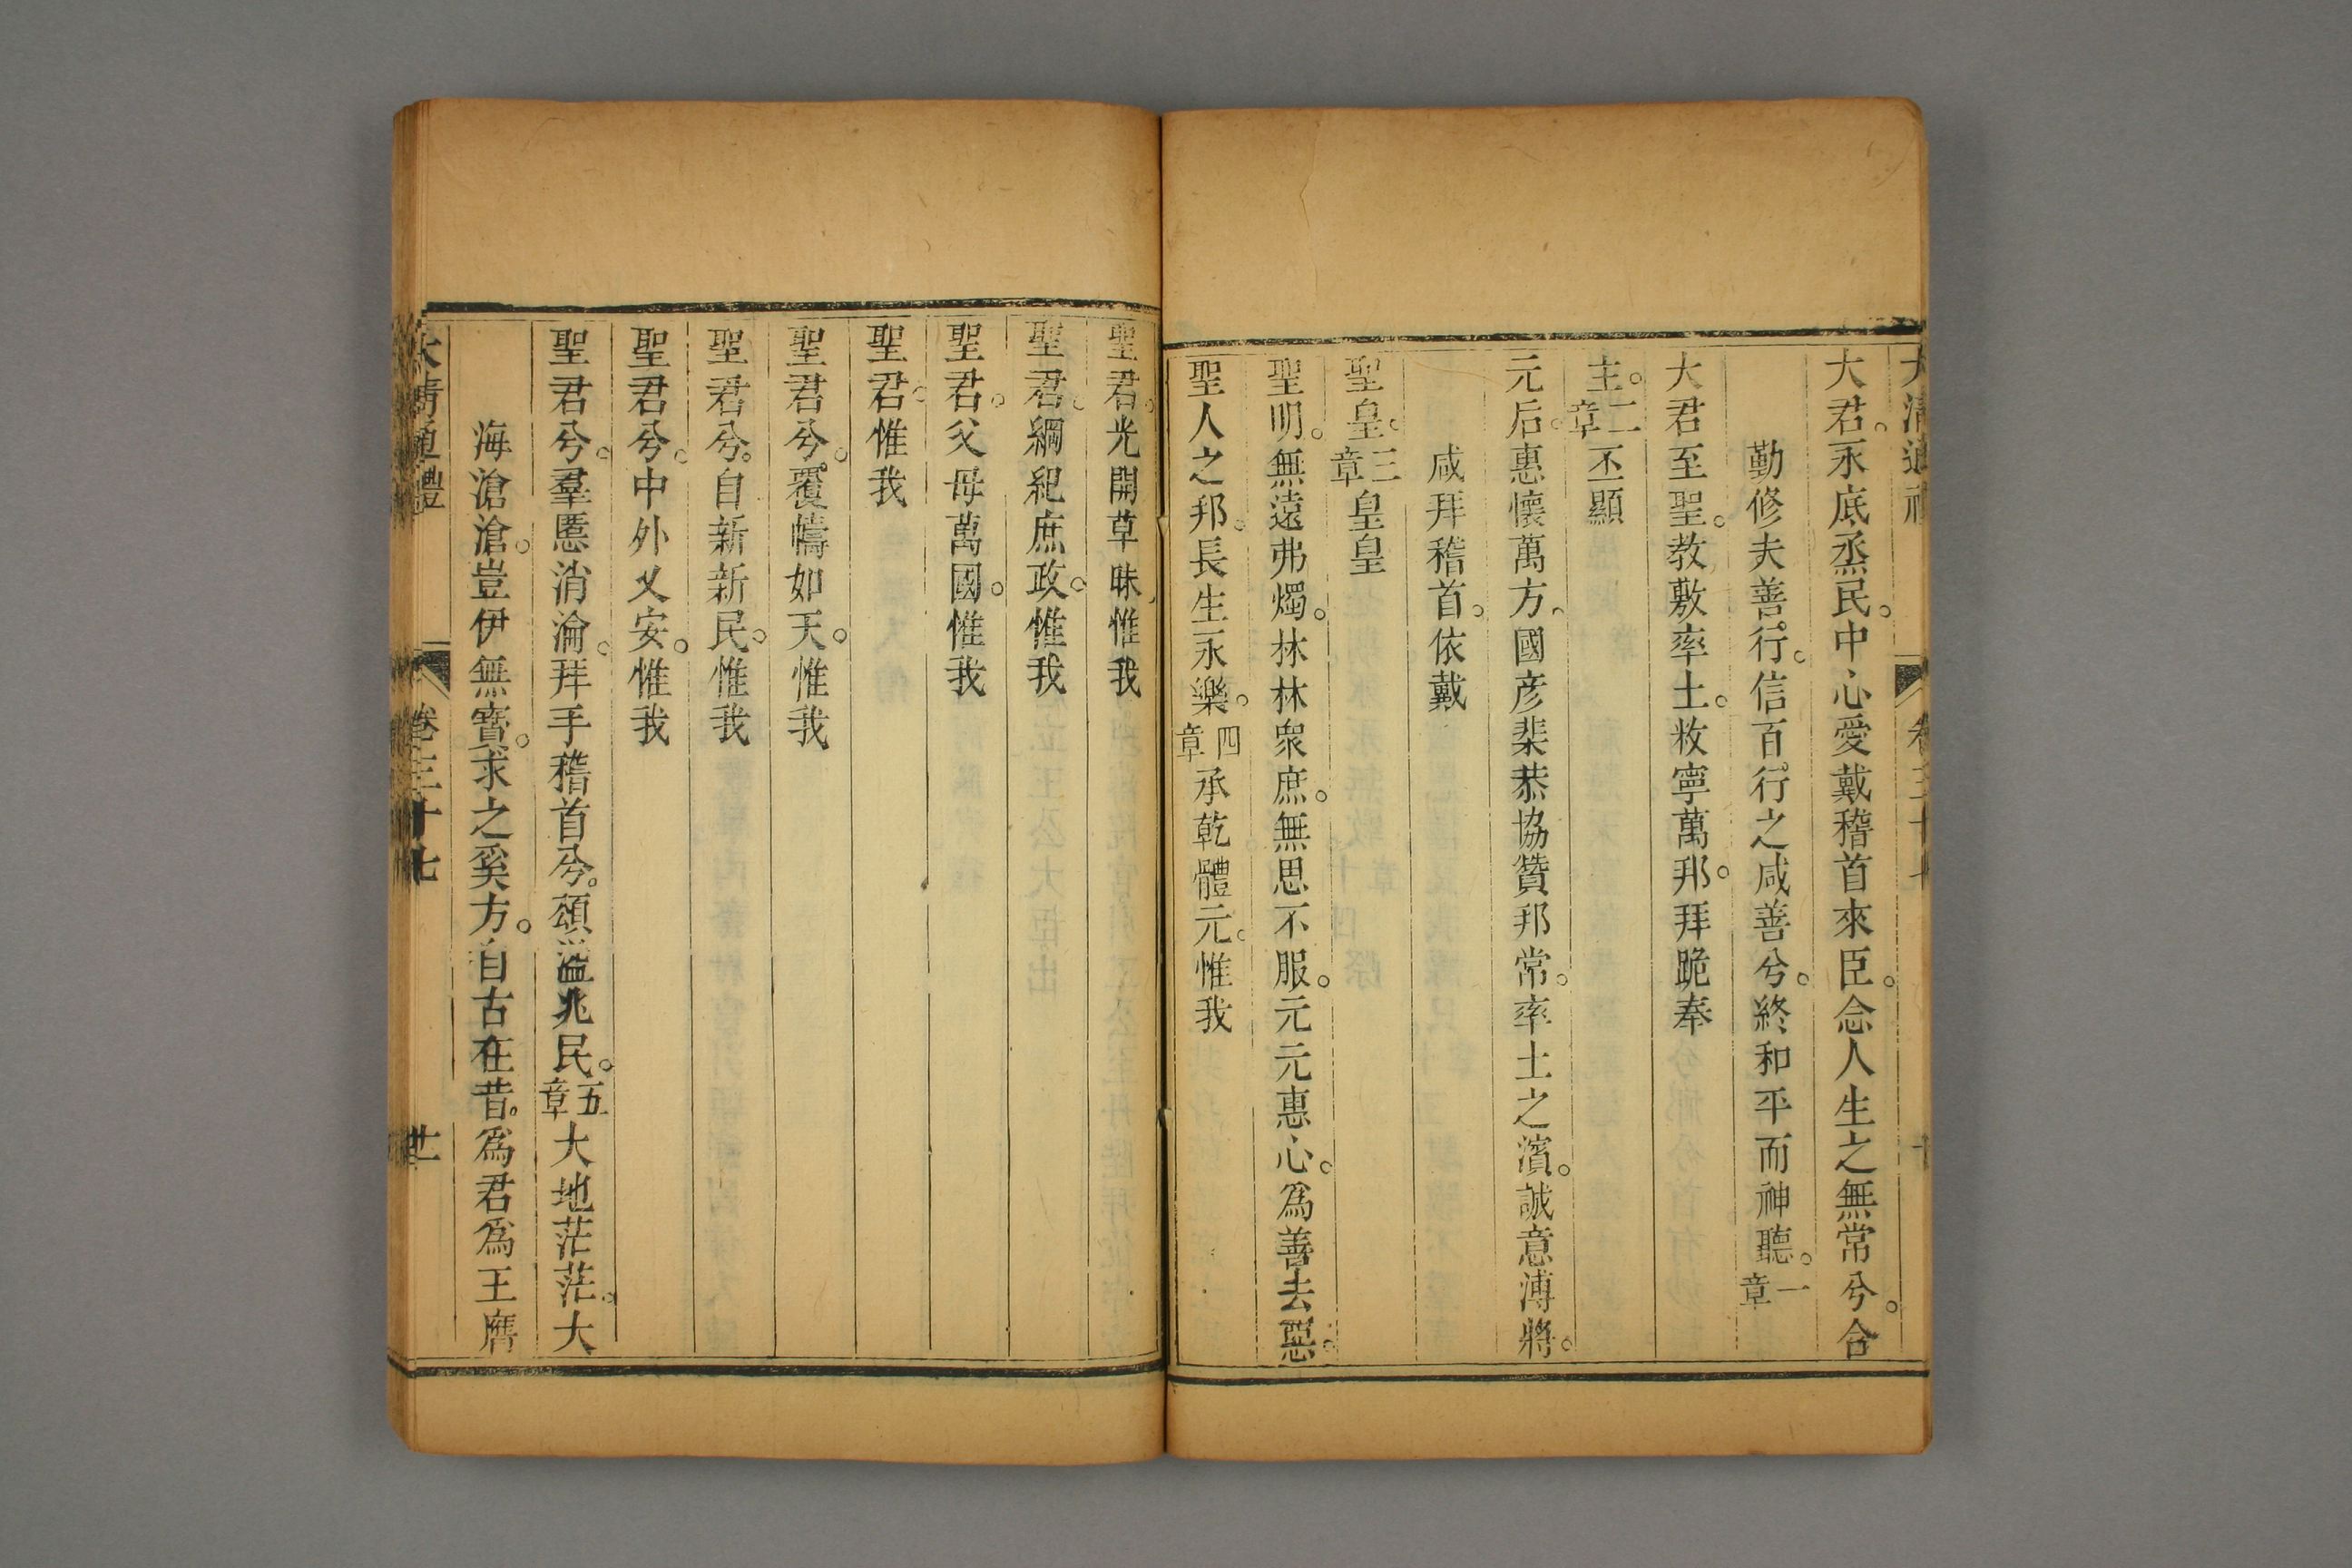 大君。永底烝民。中心愛戴稽首來臣。念人生之無常兮。合
勤修夫善行。信百行之咸善兮。終和平而神聽。一章
大君至聖。教敷率土。敉寧萬邦。拜跪奉
主。二章丕顯
元后。惠懷萬方。國彦棐恭協贊邦常。率土之濱。誠意溥將。
咸拜稽首。依戴
聖皇。三章皇皇
聖明。無遠弗燭。林林衆庶。無思不服。元元惠心。爲善去惡。
聖人之邦。長生永樂。四章承乾體元。惟我
聖君。光開草昧。惟我
聖君。綱紀庶政。惟我
聖君。父母萬國。惟我
聖君。惟我
聖君兮。覆幬如天。惟我
聖君兮。自新新民。惟我
聖君兮。中外乂安。惟我
聖君兮。羣慝消淪。拜手稽首兮。頌溢兆民。五章大地茫茫。大
海滄滄。豈伊無寳。求之奚方。自古在昔。爲君爲王膺
大清通禮 卷三十七